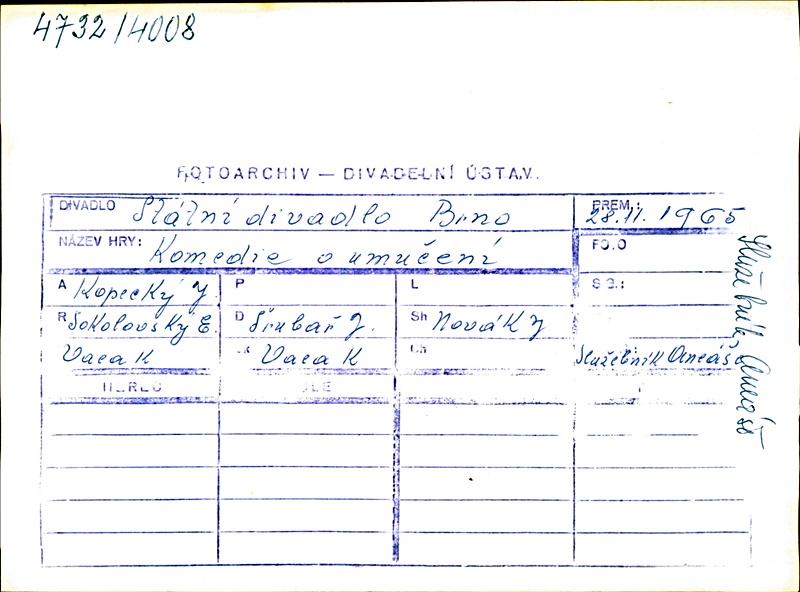 4732/4008
FOTOARCHIV — DIVADELNÍ ÚSTAV.
DIVADLO Státní divadlo Brno PREM.: 28.11.1965
NÁZEV HRY: Komedie o umučení FOTO
A Kopecký J P L
R Sokolovský E. D Šrubař J. Sh Novák J
Vaca K Vaca K Ch Služebník Ameáš
HEREC
Služebník Ameáš